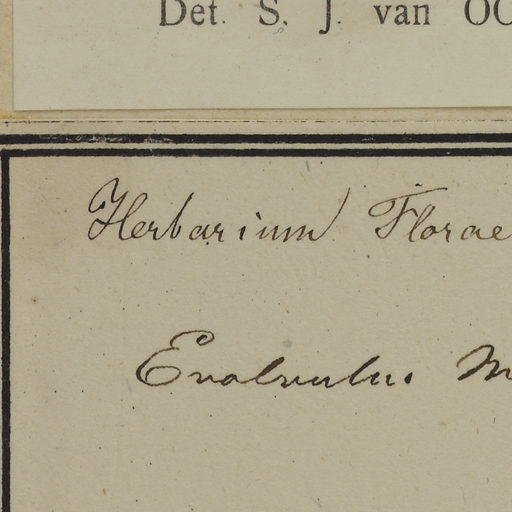 Det. S. J. van OO
Herbarium Florae
Evolvulus M